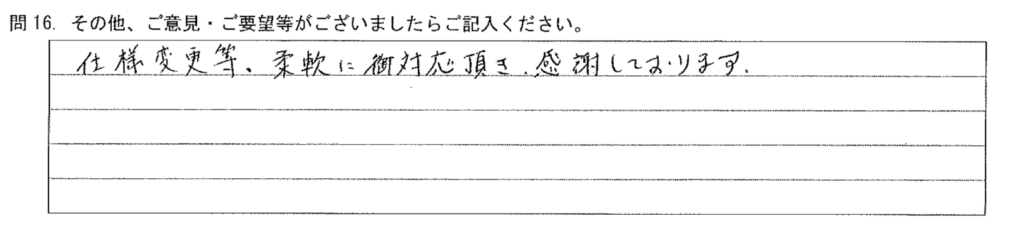 問16. その他、ご意見・ご要望等がございましたらご記入ください。
仕様変更等、柔軟に御対応頂き、感謝しております.